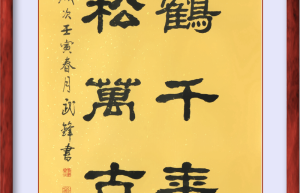 鶴千壽
松萬古
歲次壬寅春月武鋒書